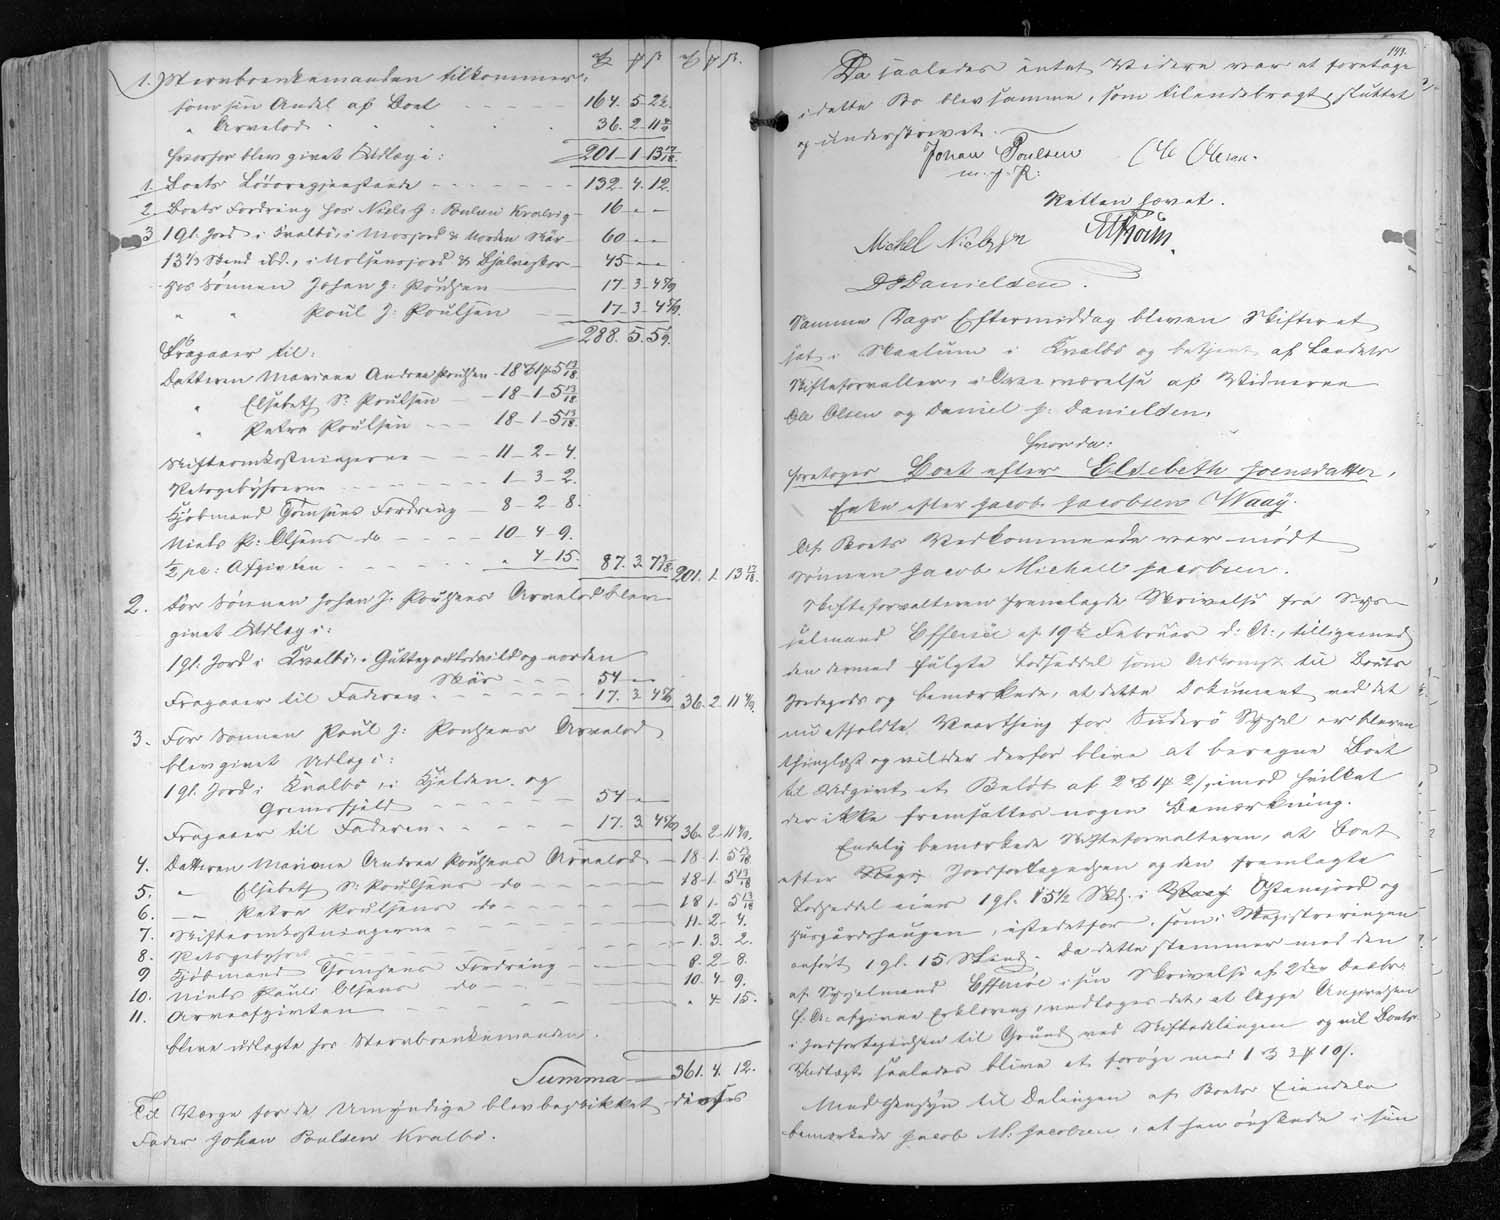 ₰ ꝑ β. ₰ ꝑ β.
1. Stervboenkemanden tilkommer:
som sin Andel af Boet - - - - 164. 5. 2½
" Arvelod - - - - 36. 2. 11 4/9
hvorfor blev givet Udlæg i: 201 - 1 - 13 17/18
1. Boets Løsøregjenstande - - - - 132. 4. 12.
2. Boets Fordring hos Niels J: Poulsen Kvalvig - 16 - " -
3 1 gl. Jord i Kvalbö, i Mosjord & Norden Skár - 60 - " -
13½ Skind ibd., i - 45 - " -
hos Sönnen Johan J: Poulsen - 17 - 3 - 4 5/9
" " Poul J: Poulsen - 17 - 3 - 4 5/9.
288. 5. 5 1/9.
Fragaaer til:
Datteren Mariane Andrea Poulsen - 18 ₰ 1 ꝑ 5 13/18
" Elsebeth S: Poulsen - 18 - 1 - 5 13/18
" Petra Poulsen - - - 18 - 1 - 5 13/18.
Skifteomkostningerne - - - 11 - 2 - 4.
Retsgebyhrerne - - - - - 1 - 3 - 2.
Kjöbmand Thomsens Fordring - 8 - 2 - 8.
Niels P: Olsens do - - - - 10 - 4 - 9.
½ pc: Afgiften - - - - - " 4 - 15. 87. 3. 7 3/18. 201. 1. 13 17/18.
2. For Sönnen Johan J. Poulsens Arvelod blev
givet Udlæg i:
1 gl. Jord i Kvalbö, i og norden
Skár - - - - 54 - " -
Fragaaer til Faderen - - - 17. 3. 4 5/9 36. 2. 11 4/9.
3. For Sönnen Poul J: Poulsens Arvelod
blev givet Udlæg i:
1 gl. Jord i Kvalbö, i Kjelden og
Gremsfjäld - - - - - 54 - " -
Fragaaer til Faderen - - - - 17. 3. 4 5/9 36. 2. 11 4/9.
4. Datteren Mariane Andrea Poulsens Arvelod - 18 - 1. 5 13/18
5. - " Elsebeth S: Poulsens do - - - - 18 - 1. 5 13/18
6. - " Petra Poulsens do - - - - 18 1 - 5 13/18
7. Skifteomkostningerne - - - - 11 - 2 - 4.
8. Retsgebyhrer - - - - - 1. 3. 2.
9 Kjöbmand Thomsens Fordring - - - 8 - 2 - 8.
10. Niels Pauli Olsens do - - - - 10. 4 - 9.
11. Arveafgiften - - - " 4. 15.
bleve udlagte hos Stervboenkemanden.
Summa - 361. 4. 12.
Til Værge for de Umyndige blev beskikket deres
Fader Johan Poulsen Kvalbö.
143.
Da saaledes intet Videre var at foretage
i dette Bo blev samme, som tilendebragt, sluttet
og underskrevet.
Johan Poulsen Ole Olsen.
m. f. P.
Retten hævet.
Michel Nielsen
D J Danielsen.
Samme Dags Eftermiddag bleven Skifteret
sat i Skaalum i Kvalbö og betjent af Landets
Skifteforvalter, i Overværelse af Vidnerne
Ole Olsen og Daniel J: Danielsen.
Hvorda:
foretoges Boet efter Elsebeth Joensdatter,
Enke efter Jacob Jacobsen Waag.
Af Boets Vedkommende var mödt
Sönnen Jacob Michall Jacobsen.
Skifteforvalteren fremlagde Skrivelse fra Sys-
selmand Effersöe af 19de Februar d: A:, tilligemed
den dermed fulgte Lodseddel som Adkomst til Boets
Jordegods og bemærkede, at dette Dokument ved det
nu afholdte Vaarthing for Suderö Syssel er bleven
thinglæst og vil der derfor blive at beregne Boet
til Udgivt et Belöb af 2 ₰ 1 ꝑ 2 /, imod hvilket
der ikke fremsattes nogen Bemærkning.
Endelig bemærkede Skifteforvalteren, at Boet
efter Jordfortegnelsen og den fremlagte
Lodseddel eier 1 gl. 15½ Skd. i Waag og
, istedetfor, som i Registreringen
anfört 1 gl. 15 Skind. Da dette stemmer med den
af Sysselmand Effersöe i sin Skrivelse af 2den Decbr.
f. A: afgivne Erklæring, vedtoges det, at lægge Angivelsen
i Jordfortegnelsen til Grund ved Skiftedelingen og vil Boets
Indtægt saaledes blive at foröge med 1 ₰ 3 ꝑ 10 /.
Med Hensyn til Delingen af Boets Eiendele
bemærkede Jacob M. Jacobsen, at han önskede i sin